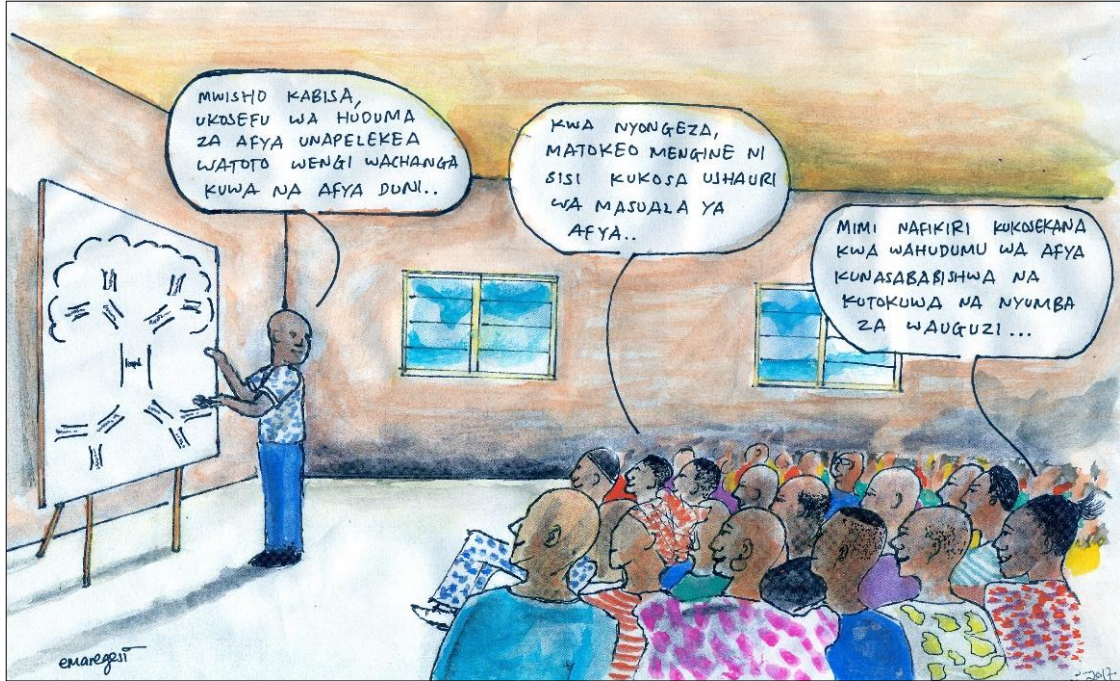 MWISHO KABISA,
UKOSEFU WA HUDUMA
ZA AFYA UNAPELEKEA
WATOTO WENGI WACHANGA
KUWA NA AFYA DUNI..
KWA NYONGEZA,
MATOKEO MENGINE NI
SISI KUKOSA USHAURI
WA MASUALA YA
AFYA..
MIMI NAFIKIRI KUKOSEKANA
KWA WAHUDUMU WA AFYA
KUNASABABISHWA NA
KUTOKUWA NA NYUMBA
ZA WAUGUZI...
emaregesi
2017